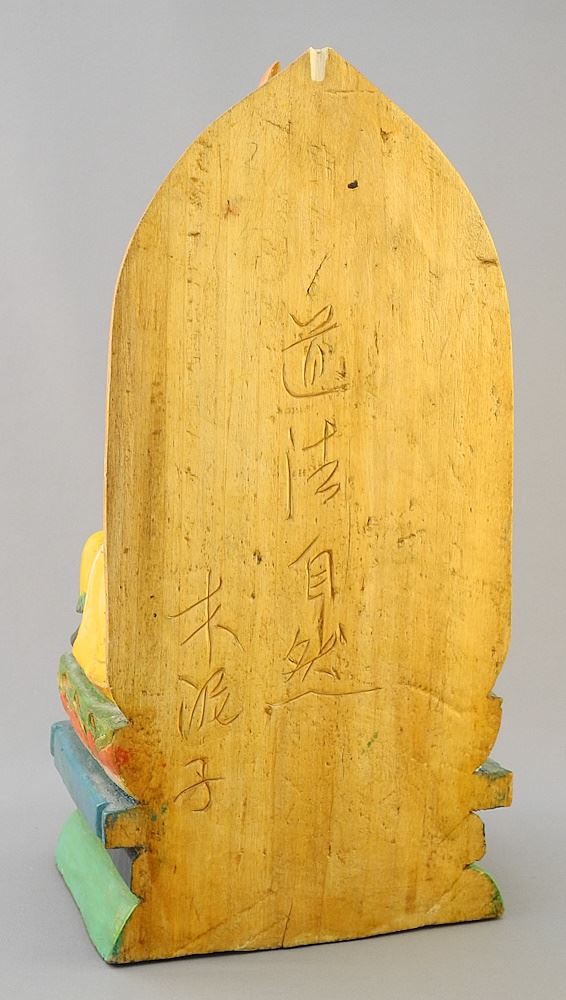 道法自然
木泥子